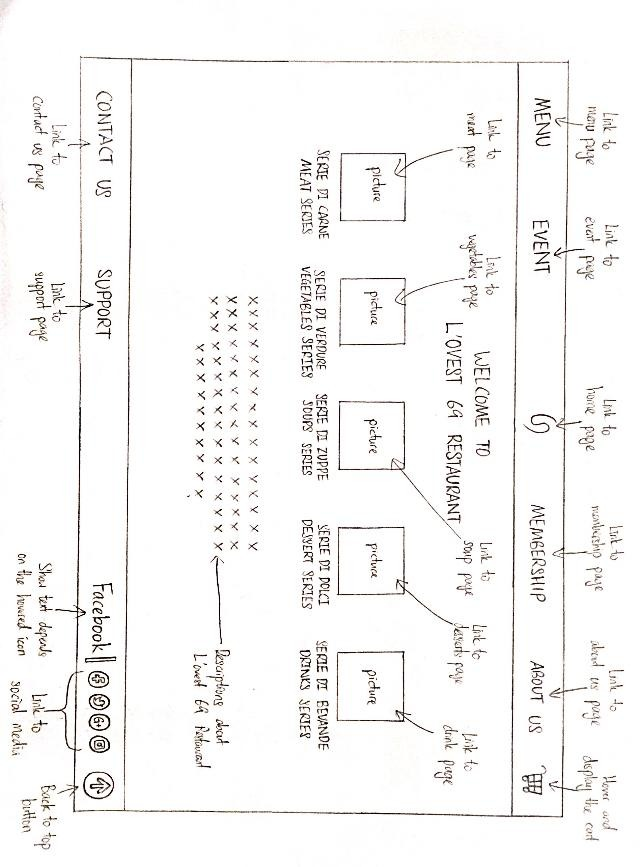 Link to
menu page
Link to
event page
Link to
home page
Link to
membership page
Link to
about us page
Hover and
display the cart
MENU
EVENT
MEMBERSHIP
ABOUT US
WELCOME TO
L'OVEST 69 RESTAURANT
Link to
meat page
Link to
vegetables page
Link to
soup page
Link to
desserts page
Link to
drink page
picture
picture
picture
picture
picture
SERIE DI CARNE
MEAT SERIES
SERIE DI VERDURE
VEGETABLES SERIES
SERIE DI ZUPPE
SOUPS SERIES
SERIE DI DOLCI
DESSERT SERIES
SERIE DI BEVANDE
DRINKS SERIES
x x x x x x x x x x x x x x x x
x x x x x x x x x x x x x x x x
x x x x x x x x x x x x x x x x
x x x x x x x x x x x .
Descriptions about
L'ovest 69 Restaurant
CONTACT US
SUPPORT
Facebook
G+
Link to
contact us page
Link to
support page
Show text depends
on the hovered icon
Link to
social media
Back to top
button